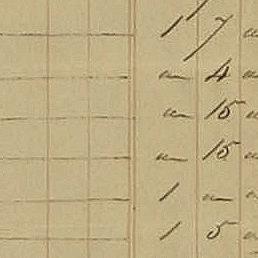 1 7 "
" 4 "
" 15 "
" 15 "
1 " "
1 5 "